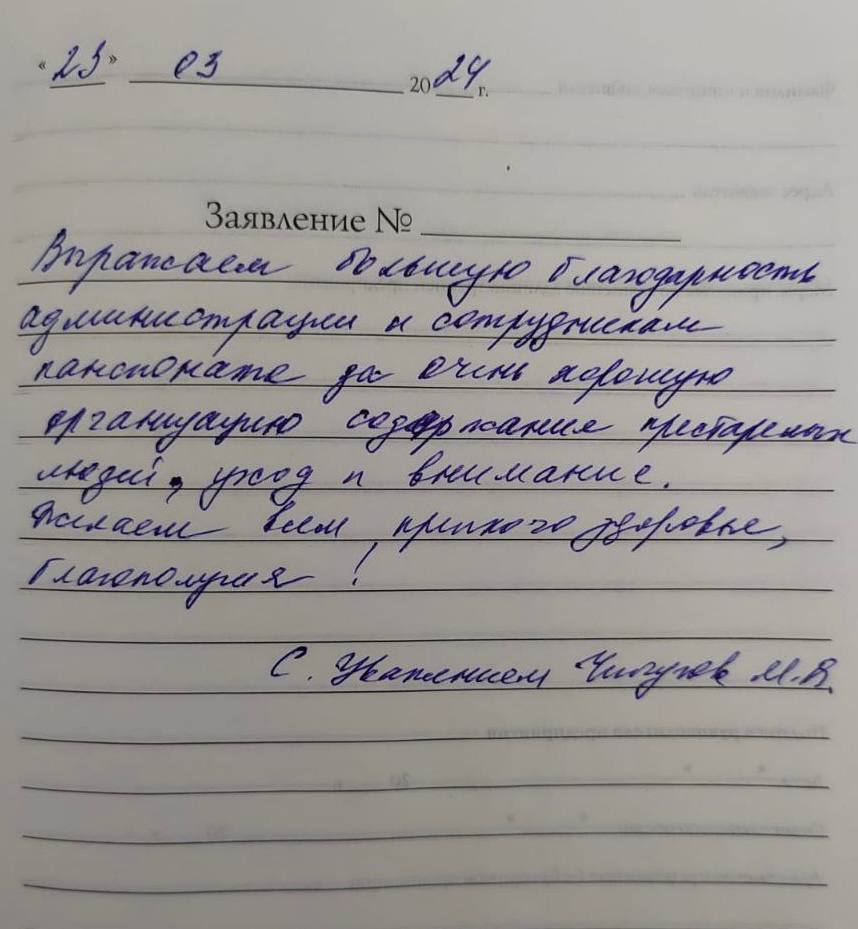 «23» 03 2024 г.
Заявление №
Выражаем большую благодарность
администрации и сотрудникам
пансионата за очень хорошую
организацию содержания престарелых
людей, уход и внимание.
Желаем всем крепкого здоровья,
благополучия!
С. Уважением М.Я.